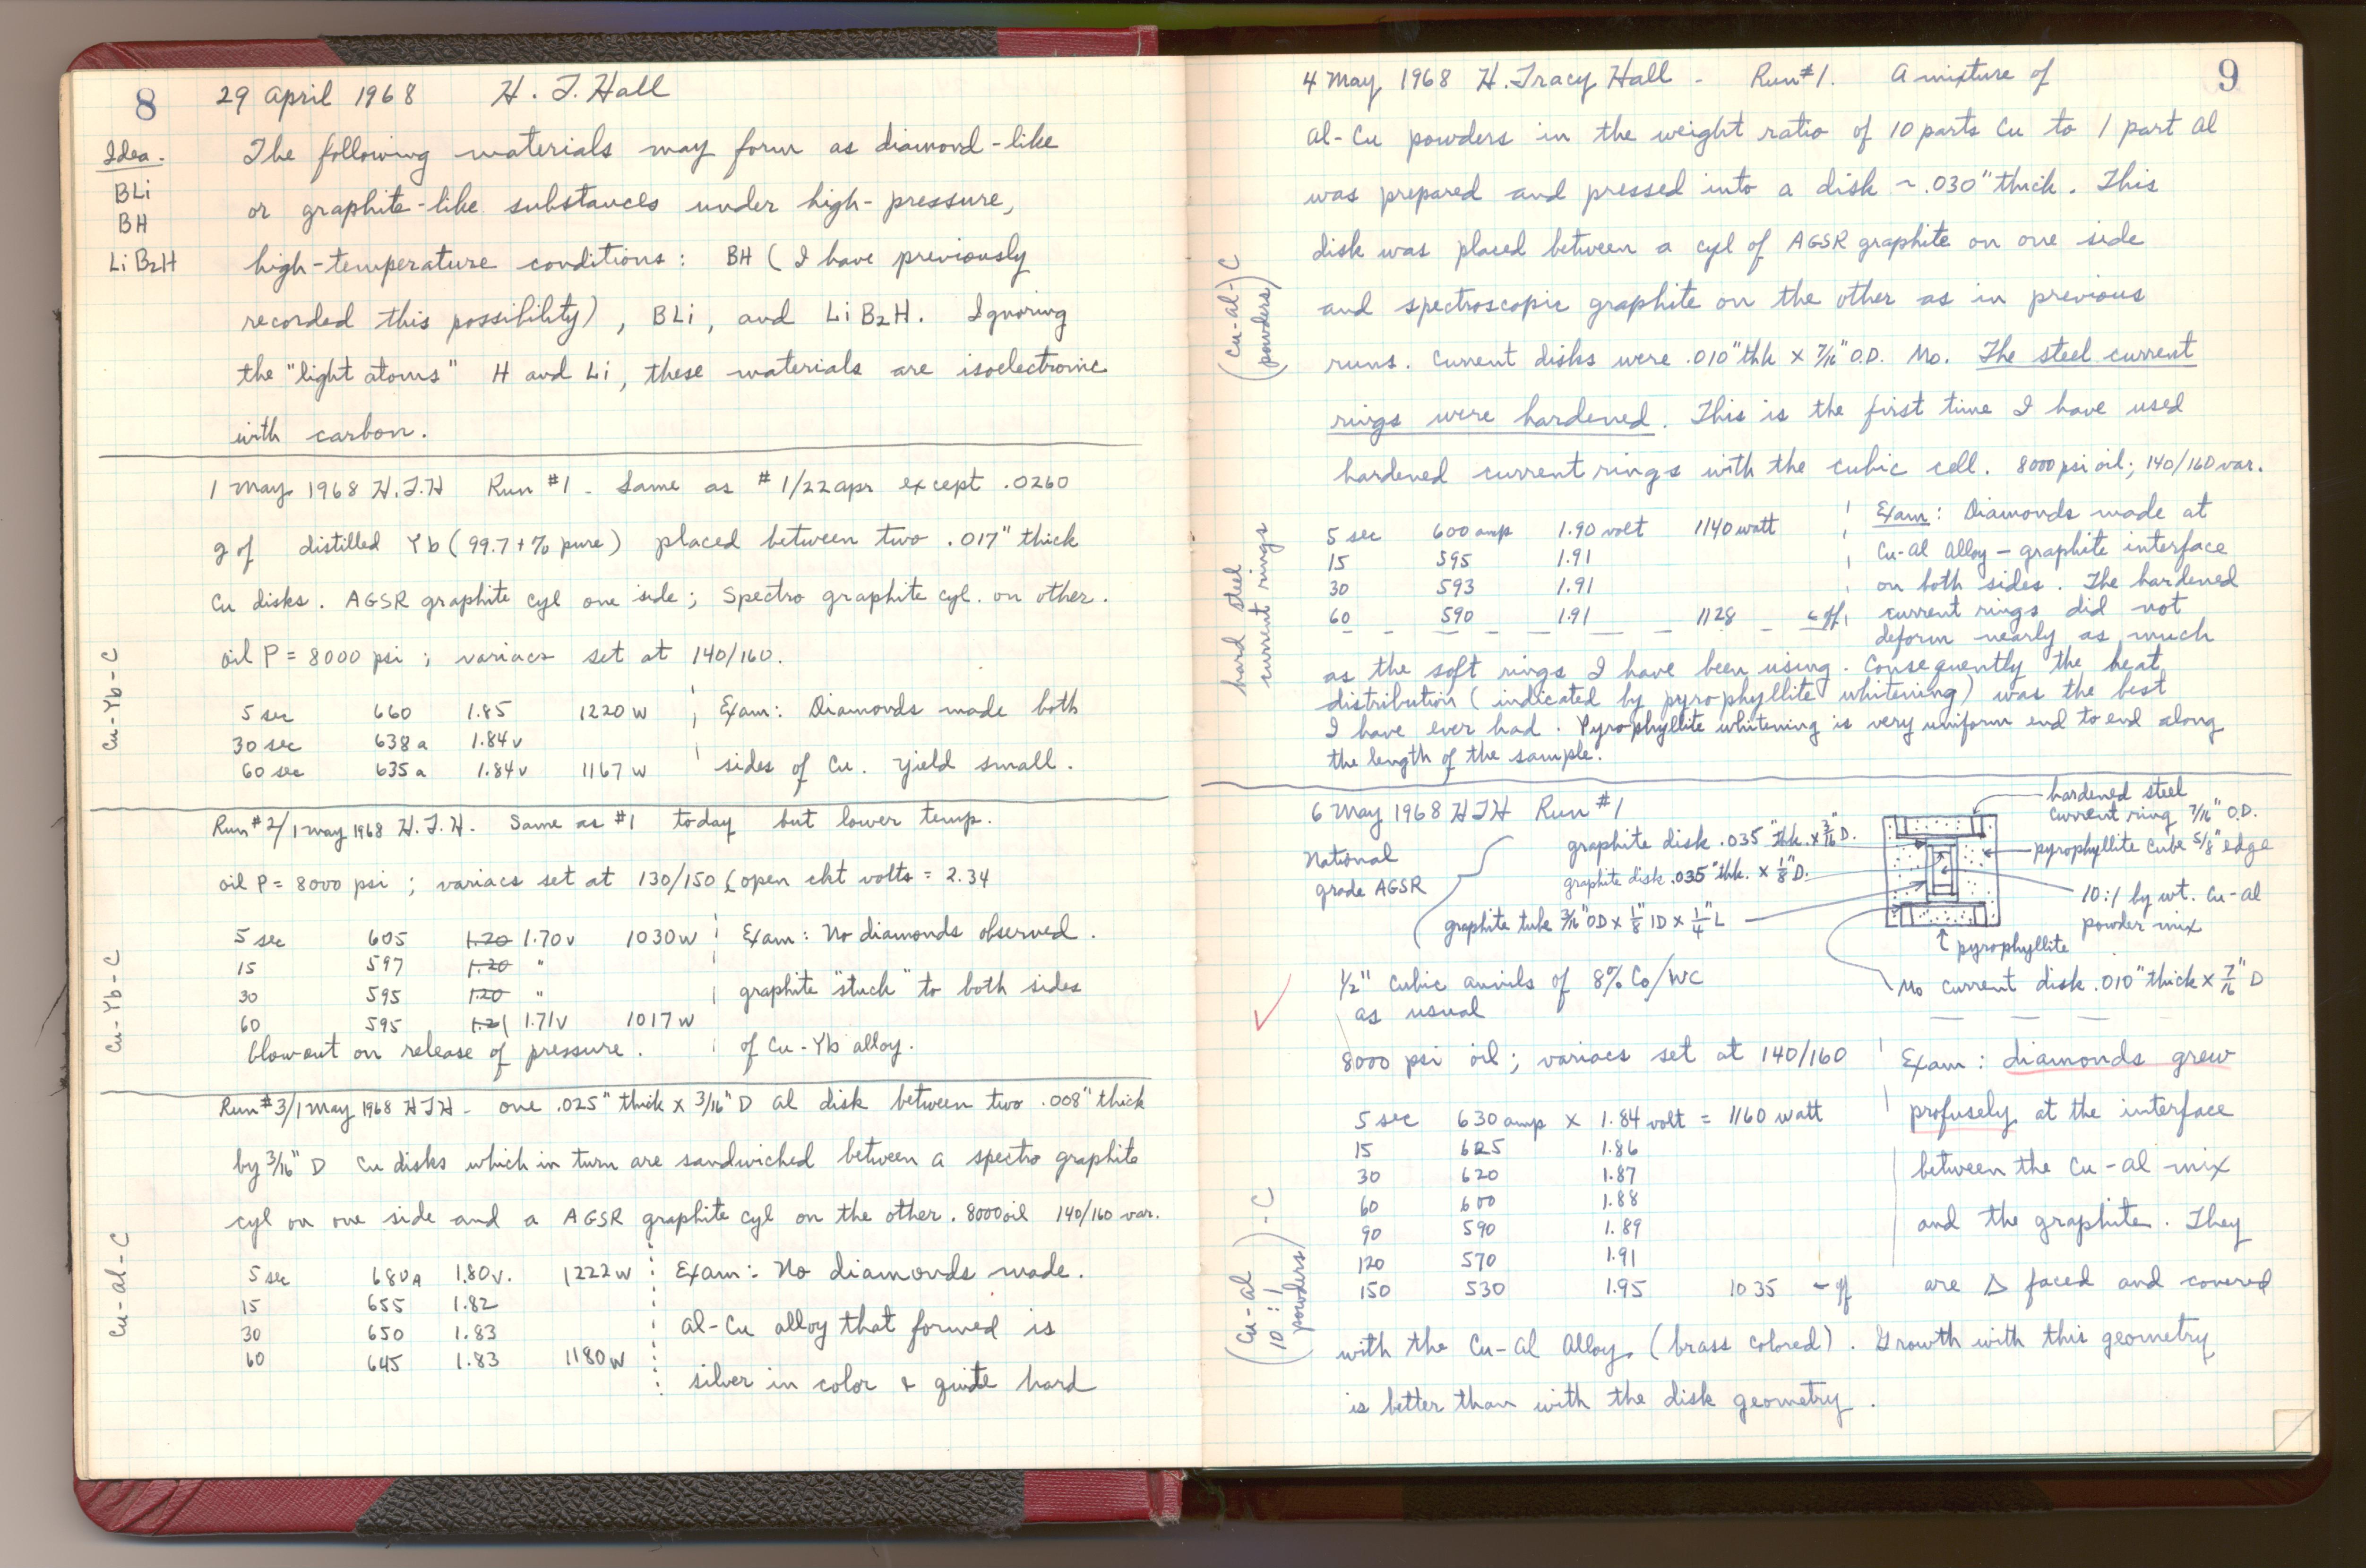 8
29 April 1968 H. T. Hall
Idea.
BLi
BH
LiB₂H
The following materials may form as diamond-like
or graphite-like substances under high-pressure,
high-temperature conditions: BH (I have previously
recorded this possibility), BLi, and LiB₂H. Ignoring
the "light atoms" H and Li, these materials are isoelectronic
with carbon.
Cu-Yb-C
1 May 1968 H.T.H Run #1 - Same as #1/22 apr except .0260
g of distilled Yb (99.7+% pure) placed between two .017" thick
Cu disks. AGSR graphite cyl one side; Spectro graphite cyl. on other.
oil P = 8000 psi; variacs set at 140/160.
5 sec 660 1.85 1220 W
30 sec 638 a 1.84 v
60 sec 635 a 1.84 v 1167 W
Exam: Diamonds made both
sides of Cu. Yield small.
Cu-Yb-C
Run #2/1 May 1968 H.T.H. Same as #1 today but lower temp.
oil P = 8000 psi; variacs set at 130/150 (open ckt volts = 2.34
5 sec 605 1.20 1.70 v 1030 W
15 597 1.20 "
30 595 1.20 "
60 595 1.21 1.71 V 1017 W
blowout on release of pressure.
Exam: No diamonds observed.
graphite "stuck" to both sides
of Cu-Yb alloy.
Cu-Al-C
Run #3/1 May 1968 HTH - one .025" thick x 3/16" D Al disk between two .008" thick
by 3/16" D Cu disks which in turn are sandwiched between a spectro graphite
cyl on one side and a AGSR graphite cyl on the other. 8000 oil 140/160 var.
5 sec 680 A 1.80 v. 1222 W
15 655 1.82
30 650 1.83
60 645 1.83 1180 W
Exam: No diamonds made.
Al-Cu alloy that formed is
silver in color & quite hard
9
4 May 1968 H. Tracy Hall - Run #1. A mixture of
Al-Cu powders in the weight ratio of 10 parts Cu to 1 part Al
was prepared and pressed into a disk ~ .030" thick. This
disk was placed between a cyl of AGSR graphite on one side
and spectroscopic graphite on the other as in previous
runs. Current disks were .010" thk x 7/16" O.D. Mo. The steel current
rings were hardened. This is the first time I have used
hardened current rings with the cubic cell. 8000 psi oil; 140/160 var.
(Cu-Al-)C
(powders)
hard steel
current rings
5 sec 600 amp 1.90 volt 1140 watt
15 595 1.91
30 593 1.91
60 590 1.91 1128 ← off
Exam: Diamonds made at
Cu-Al Alloy - graphite interface
on both sides. The hardened
current rings did not
deform nearly as much
as the soft rings I have been using. Consequently the heat
distribution (indicated by pyrophyllite whitening) was the best
I have ever had. Pyrophyllite whitening is very uniform end to end along
the length of the sample.
6 May 1968 HTH Run #1
National
grade AGSR
graphite disk .035" thk. x 3/16" D.
graphite disk .035" thk. x 1/8" D.
graphite tube 3/16" OD x 1/8" ID x 1/4" L
hardened steel
current ring 7/16" O.D.
pyrophyllite cube 5/8" edge
10:1 by wt. Cu-Al
powder mix
↑ pyrophyllite
Mo current disk .010" thick x 7/16" D
1/2" cubic anvils of 8% Co/WC
as usual
8000 psi oil; variacs set at 140/160
(Cu-Al)-C
10:1
powders)
5 sec 630 amp x 1.84 volt = 1160 watt
15 625 1.86
30 620 1.87
60 600 1.88
90 590 1.89
120 570 1.91
150 530 1.95 1035 ← off
Exam: diamonds grew
profusely at the interface
between the Cu-Al mix
and the graphite. They
are Δ faced and covered
with the Cu-Al Alloy (brass colored). Growth with this geometry
is better than with the disk geometry.